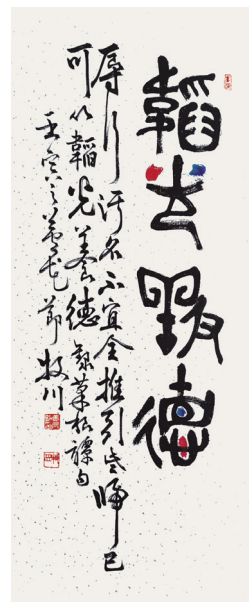 韜光養德
辱行污名不宜全推引些歸己
可以韜光養德錄菜根譚句
壬寅之節牧川